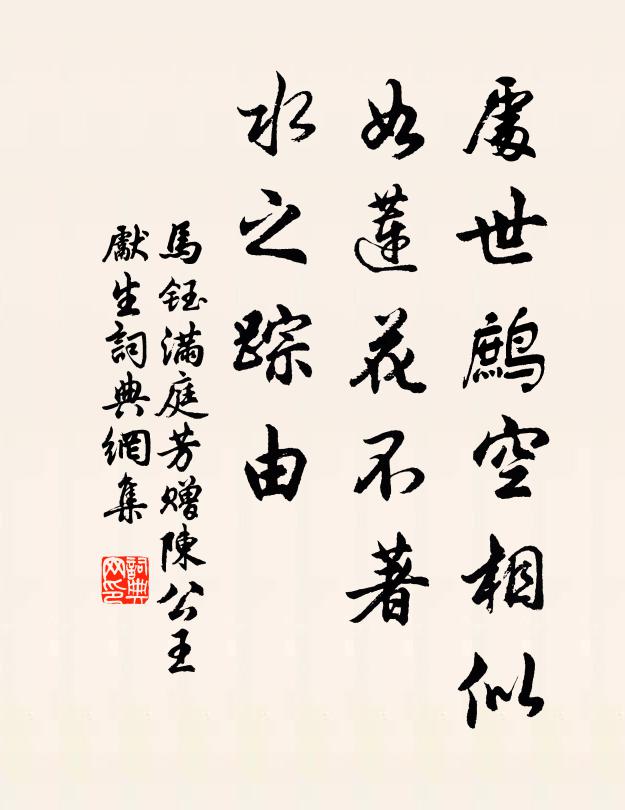 處世鷓空相似
如蓮花不著
水之踪由
馬鈺滿庭芳赠陳公王
獻生詞典網集
詞典网印